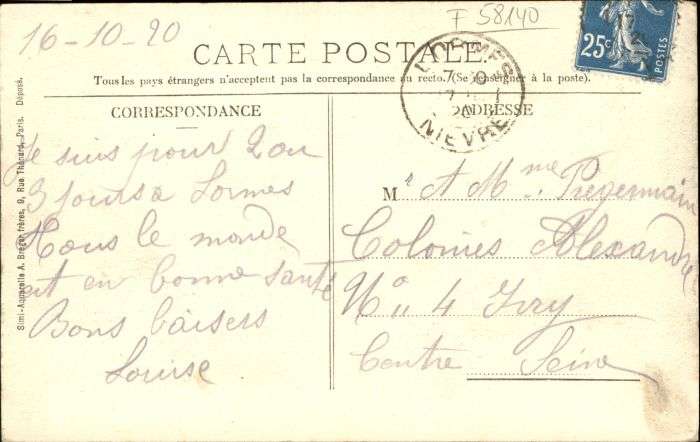 16-10-20
F 58140
CARTE POSTALE
Tous les pays étrangers n'acceptent pas la correspondance au recto. (Se renseigner à la poste).
25c
POSTES
LORMES
NIÈVRE
CORRESPONDANCE
ADRESSE
Je suis pour 2 ou
3 jours a Lormes
Tous le monde
est en bonne santé
Bons baisers
Louise
M r A Mme Pregermain
Colonies Alexandre
No 4 Ivry
Centre Seine
Simi-Aquarelle A. Breger frères, 9, Rue Thénard, Paris. Déposé.